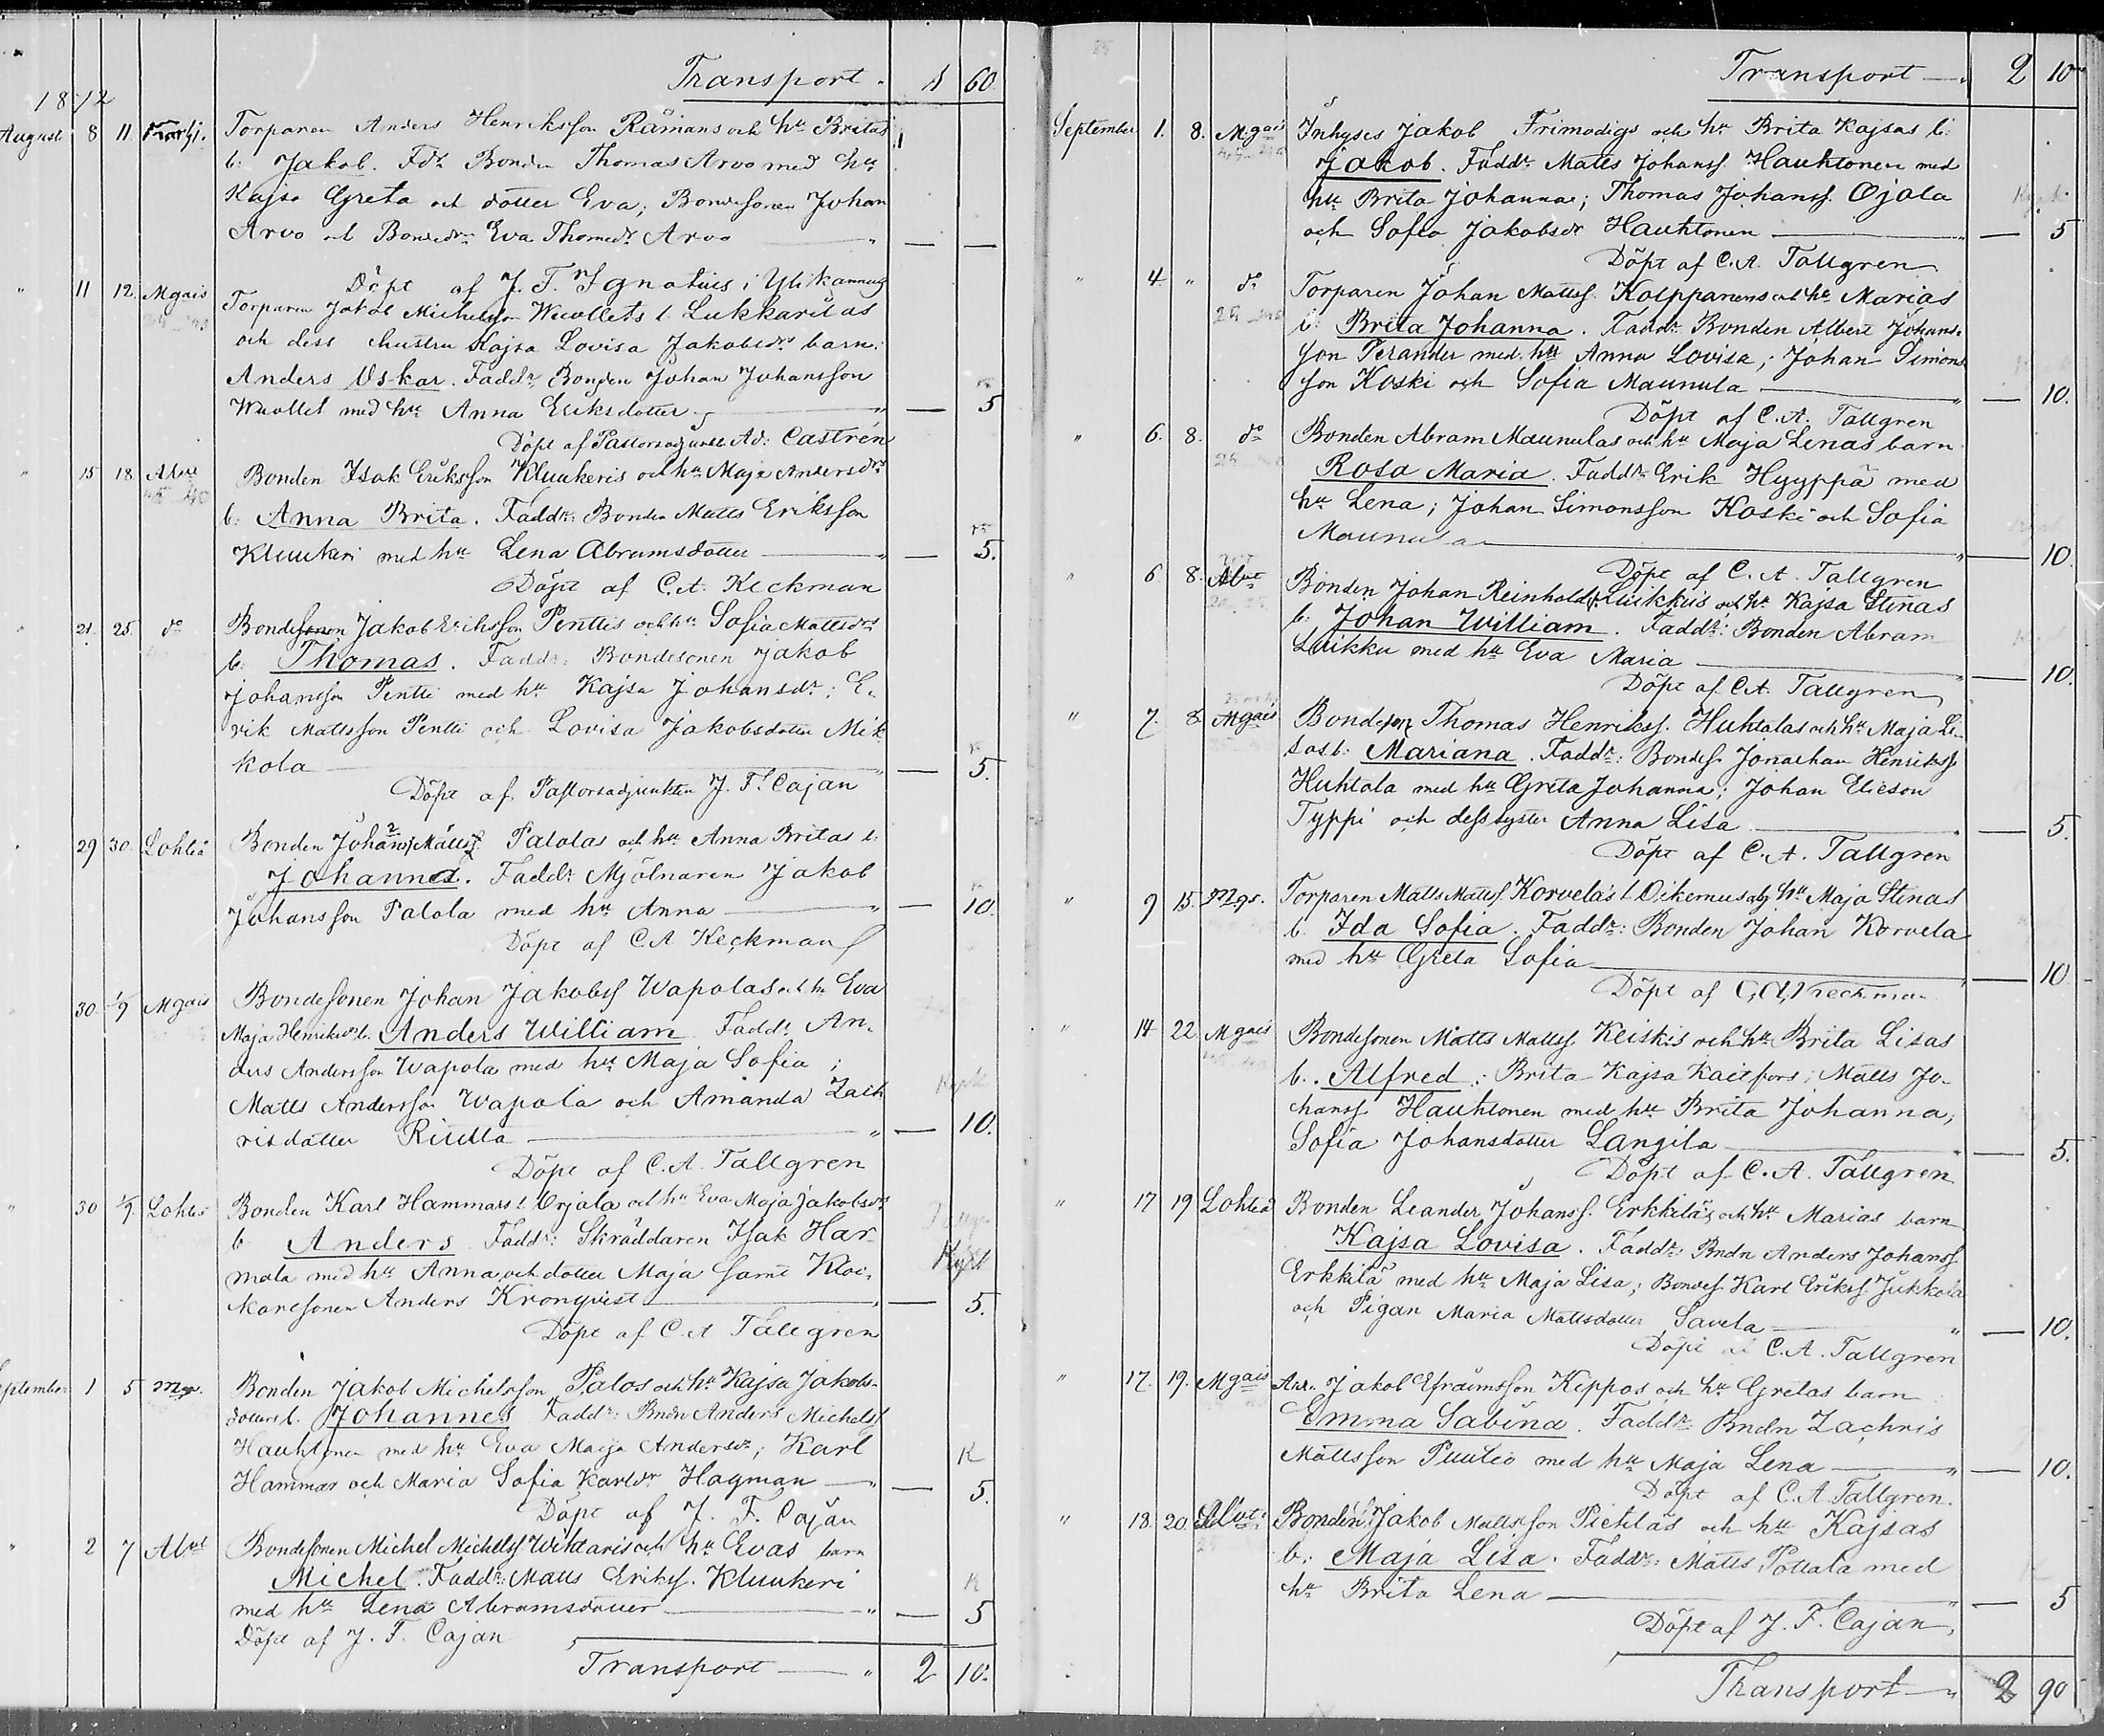 Transport. 1 60
1872
August 8 11. Torparen Anders Henriksson Råmans och hu Britas
b: Jakob. Fdr Bonden Thomas Arvo med hu
Kajsa Greta och dotter Eva; Bondesonen Johan
Arvo och Bondedr Eva Thomedr Arvo — —
Döpt af J. F. Ignatius i Ylikannus
" 11 12. Mgais Torparen Jakob Michelsson Wuollets l. Lukkarilas
och dess hustru Kajsa Lovisa Jakobsdrs barn:
Anders Oskar. Faddr Bonden Johan Johansson
Wuollet med hu Anna Eriksdotter " — 5
Döpt af Pastorsadjunkt Ad: Castrén
" 15 18 Alvt Bonden Isak Eriksson Kluukeris och hu Maja Andersdrs
b: Anna Brita. Faddr: Bonden Matts Eriksson
Kluukeri med hu Lena Abramsdotter " — 5.
Döpt af C. A. Keckman
" 21. 25. do Bondesonen Jakob Eriksson Penttis och hu Sofia Mattsdrs
b: Thomas. Faddr: Bondesonen Jakob
Johansson Pentti med hu Kajsa Johansdr; E-
rik Mattsson Pentti och Lovisa Jakobsdotter Mik
kola " — 5.
Döpt af Pastorsadjunkten J. F. Cajan
29 30. Lohteå Bonden Johan Mattss Palolas och hu Anna Britas b:
Johannes. Faddr Mjölnaren Jakob
Johansson Palola med hu Anna " — 10.
Döpt af C. A Keckman
30. 1/9 Mgais Bondesonen Johan Jakobss Wapolas och hu Eva
Maja Henriksdrs b. Anders William Faddr An-
ders Andersson Wapola med hu Maja Sofia;
Matts Andersson Wapola och Amanda Zach
risdotter " — 10.
Döpt af C. A. Tallgren
" 30 1/9. Lohteå Bonden Karl Hammars l. Orjala och hu Eva Maja Jakobsdrs
b Anders Faddr: Skräddaren Isak Har-
mala med hu Anna och dotter Maja samt Kloc-
karesonen Anders Kronqvist " — 5.
Döpt af C. A Tallgren
September 1 5 Mgs. Bonden Jakob Michelsson Palos och hu Kajsa Jakobs-
dotters b. Johannes Faddr: Bndn Anders Michelss
Hauhtonen med hu Eva Maja Andersdr; Karl
Hammar och Maria Sofia Karlsdr Hagman " — 5.
Döpt af J. F. Cajan
" 2 7 Alvt Bondesonen Michel Michelss Wiktaris och hu Evas barn
Michel. Faddr: Matts Erikss. Kluukeri
med hu Lena Abramsdotter " — 5
Döpt af J. F. Cajan
Transport " 2 10.
Transport 2 10
September 1. 8. Mgais Inhyses Jakob Frimodigs och hu Brita Kajsas b:
Jakob. Faddr Matts Johanss. Hauhtonen med
hu Brita Johanna; Thomas Johanss. Ojala
och Sofia Jakobsdr Hauhtonen " — 5
Döpt af C. A. Tallgren
" 4 " do Torparen Johan Mattss. Kolppanens och hu Marias
b: Brita Johanna. Faddr Bonden Albert Johans-
son Perander med hu Anna Lovisa; Johan Simons
son Koski och Sofia Maunula " — 10.
Döpt af C. A. Tallgren
" 6. 8. do Bonden Abram Maunulas och hu Maja Lenas barn
Rosa Maria. Faddr Erik Hyyppä med
hu Lena; Johan Simonsson Koski och Sofia
Maunula " — 10
Döpt af C. A. Tallgren
" 6 8. Alvt Bonden Johan Reinholds Luikkus och hu Kajsa Stinas
b: Johan William. Faddr: Bonden Abram
Luikku med hu Eva Maria " — 10.
Döpt af C. A. Tallgren
" 7. 8. Mgais Bondeson Thomas Henrikss. Huhtalas och hu Maja Li-
sas b: Mariana. Faddr: Bondes. Jonathan Henrikss
Huhtala med hu Greta Johanna; Johan Elieson
Typpi och dess syster Anna Lisa — 5.
Döpt af C. A. Tallgren
" 9 15. Mgs. Torparen Matts Mattss. Korvelas l Oikemus och hu Maja Stinas
b. Ida Sofia. Faddr: Bonden Johan Korvela
med hu Greta Sofia — 10
Döpt af C. A. Keckman
" 14 22 Mgais Bondesonen Matts Mattss. Keiskis och hu Brita Lisas
b. Alfred: Brita Kajsa Kaitfors; Matts Jo-
hanss. Hauhtonen med hu Brita Johanna;
Sofia Johansdotter Långila — 5.
Döpt af C. A. Tallgren
" 17 19 Lohteå Bonden Leander Johanss. Erkkiläs och hu Marias barn
Kajsa Lovisa. Faddr Bndn Anders Johanss
Erkkilä med hu Maja Lisa; Bondes. Karl Erikss. Jukkola
och Pigan Maria Mattsdotter Savela " — 10.
Döpt af C. A. Tallgren
" 17. 19. Mgais Jakob Efraimsson Keppos och hu Gretas barn
Emma Sabina. Faddr Bndn Zachris
Mattsson Puutio med hu Maja Lena " — 10.
Döpt af C. A. Tallgren.
" 18. 20 Alvt. Bonden Jakob Mattsson Pietiläs och hu Kajsas
b: Maja Lisa. Faddr: Matts Pottala med
hu Brita Lena " — 5
Döpt af J. F. Cajan,
Transport " 2 90